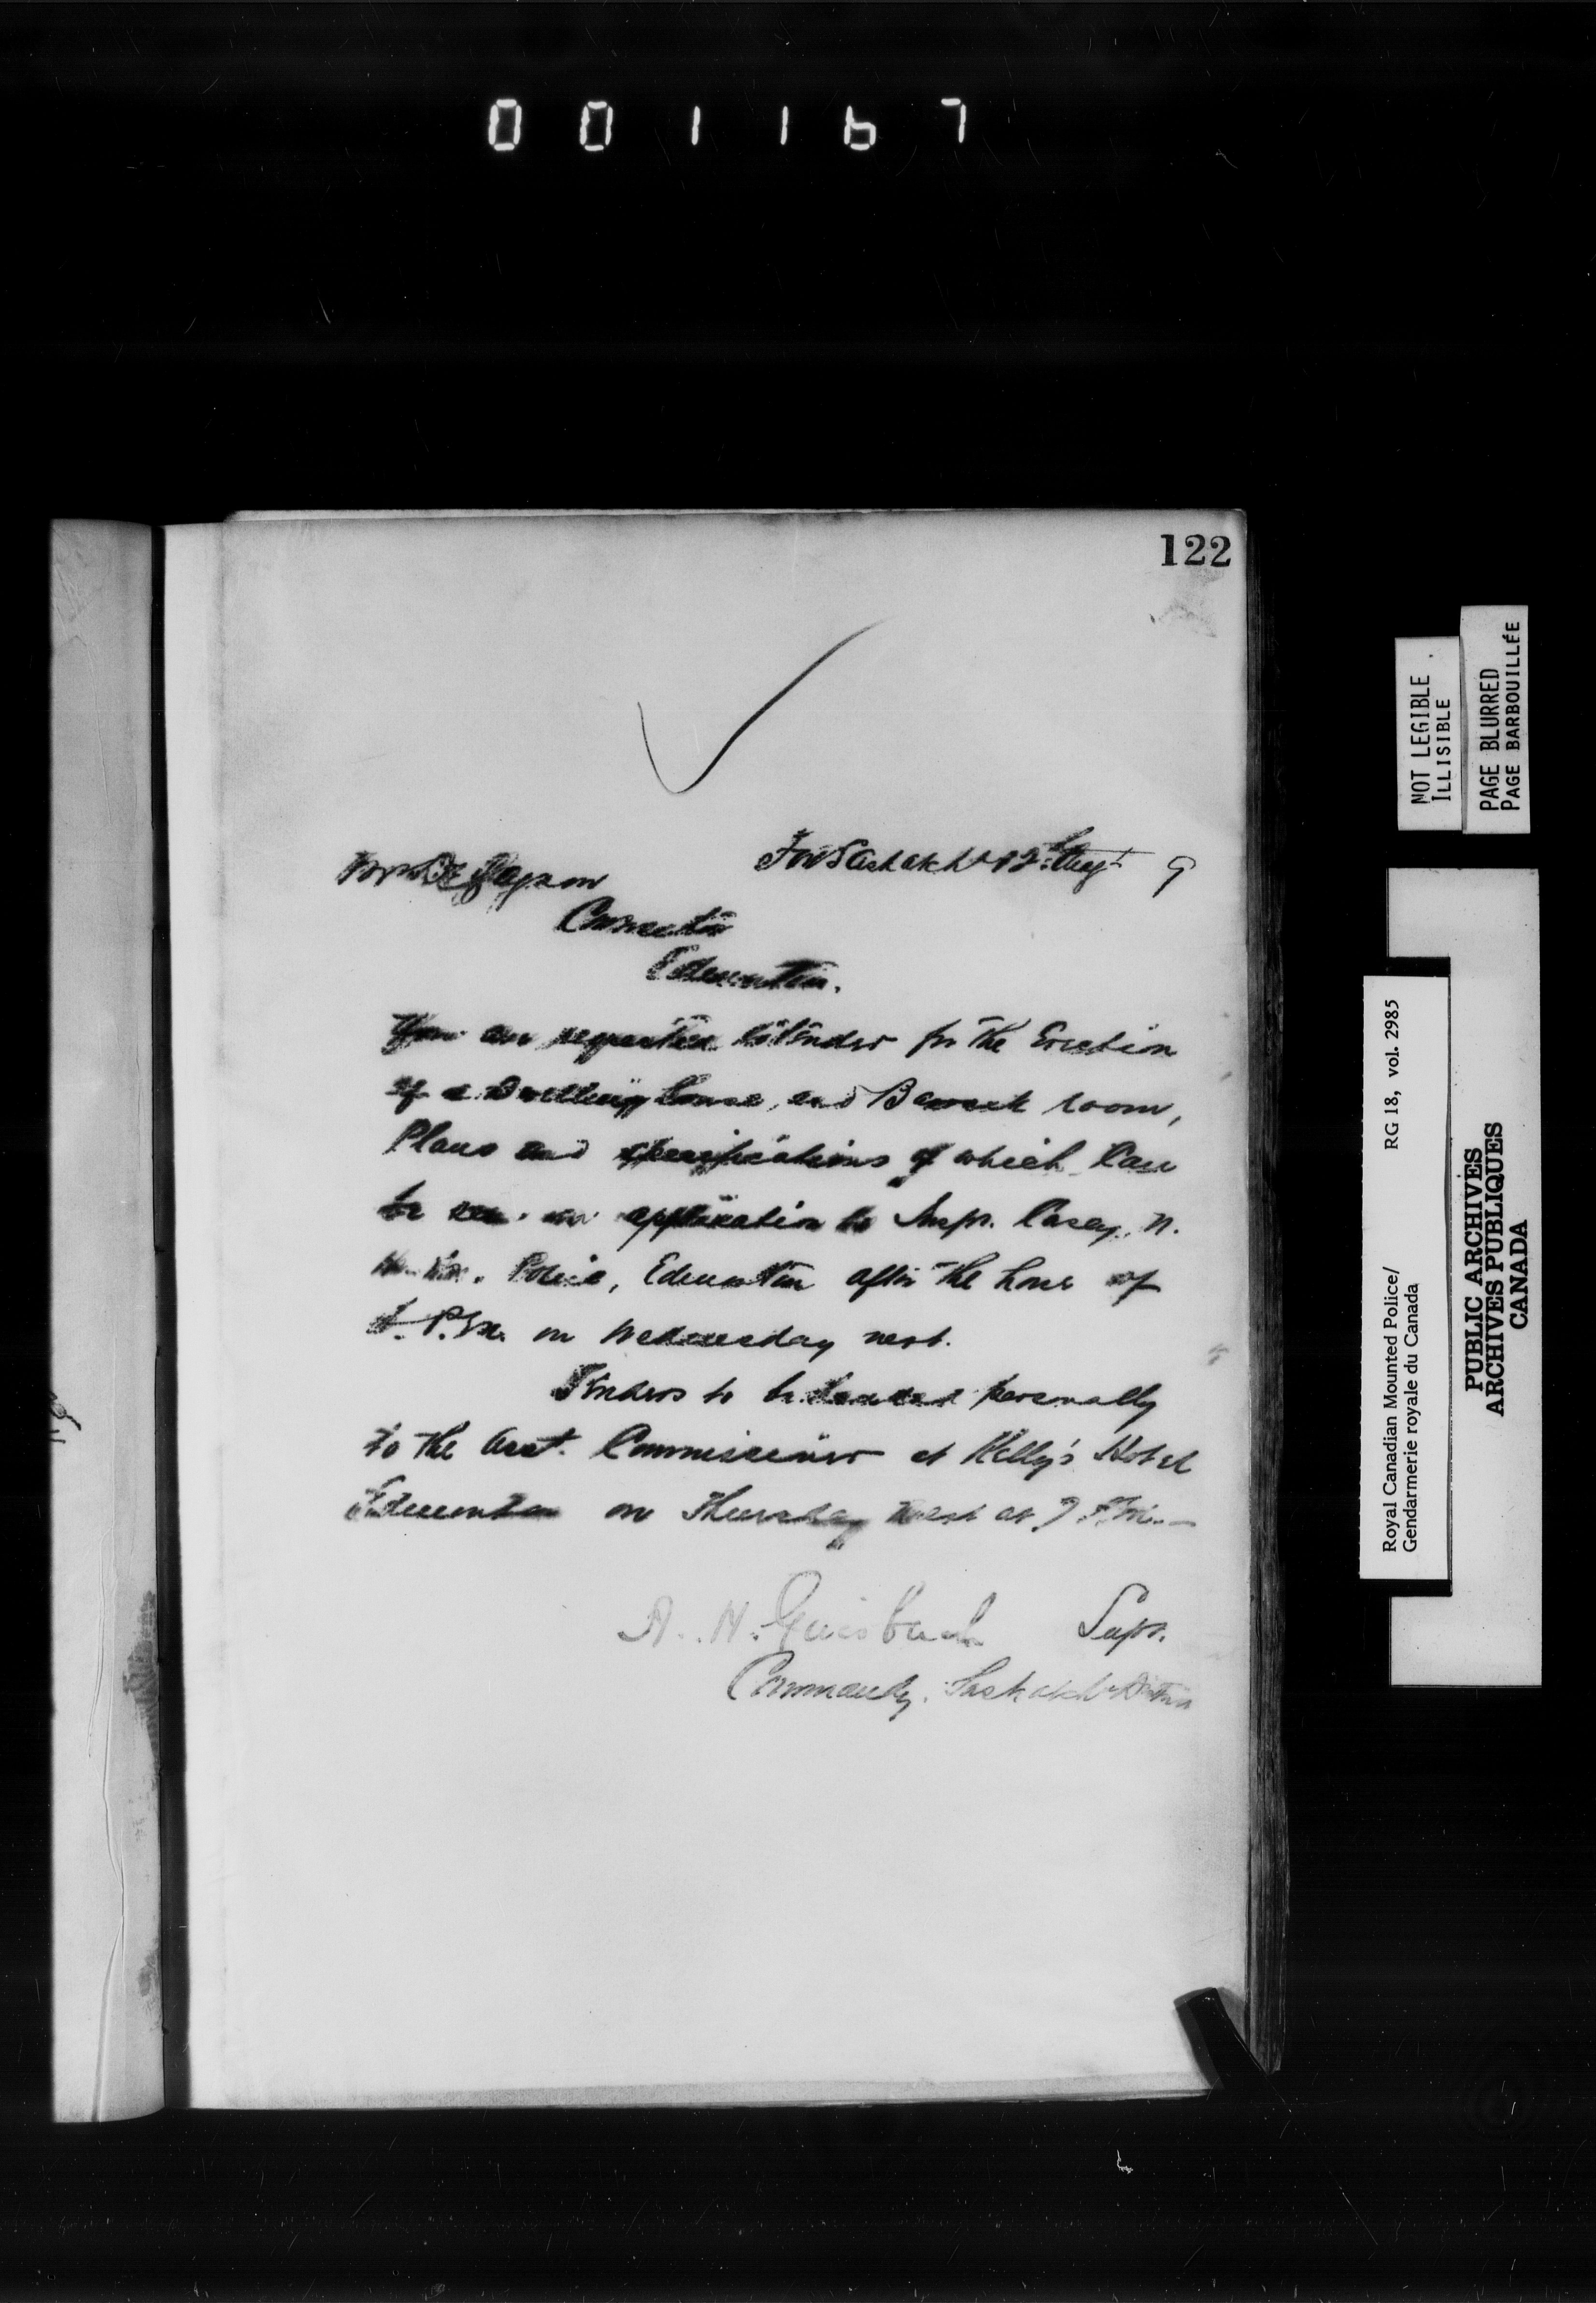 001167
122
Ft Saskatchn 12th Augt 9
Edmonton.
You are requested to tender for the Erection
of a Dwelling house, and Barrack room,
Plans and specifications of which Can
be seen on application to Insp. Casey, N.
W. M. Police, Edmonton after the hour of
P.M. on Wednesday next.
Tenders to be handed personally
to the Asst. Commissioner at Kelly's Hotel
Edmonton on Thursday next at 7 P.M.
A. H. Griesbach Supt.
Commandg. Saskatchn
NOT LEGIBLE
ILLISIBLE
PAGE BLURRED
PAGE BARBOUILLÉE
Royal Canadian Mounted Police/ RG 18, vol. 2985
Gendarmerie royale du Canada
PUBLIC ARCHIVES
ARCHIVES PUBLIQUES
CANADA